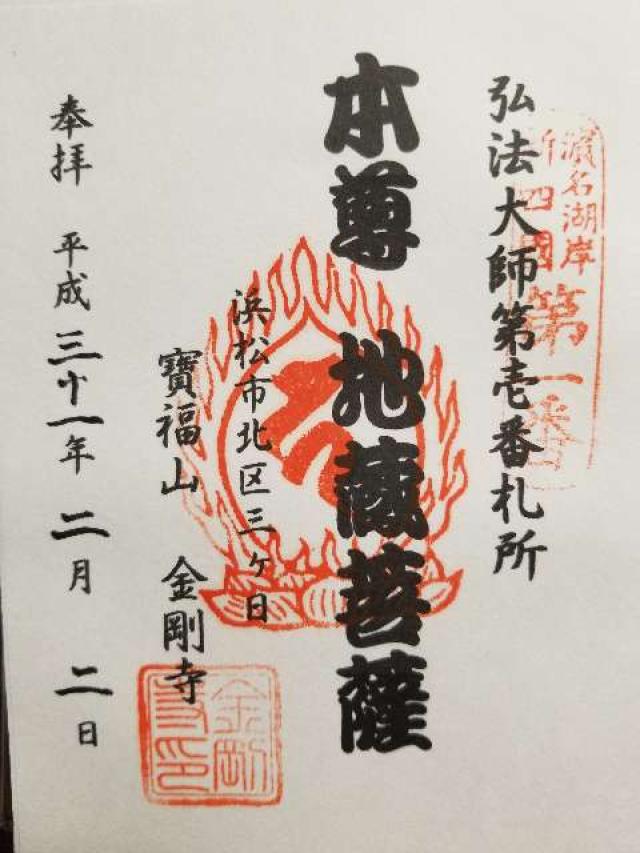 濱名湖岸
新四國第一番
弘法大師第壱番札所
本尊 地蔵菩薩
浜松市北区三ケ日
寶福山 金剛寺
金剛寺印
奉拝 平成三十一年二月二日